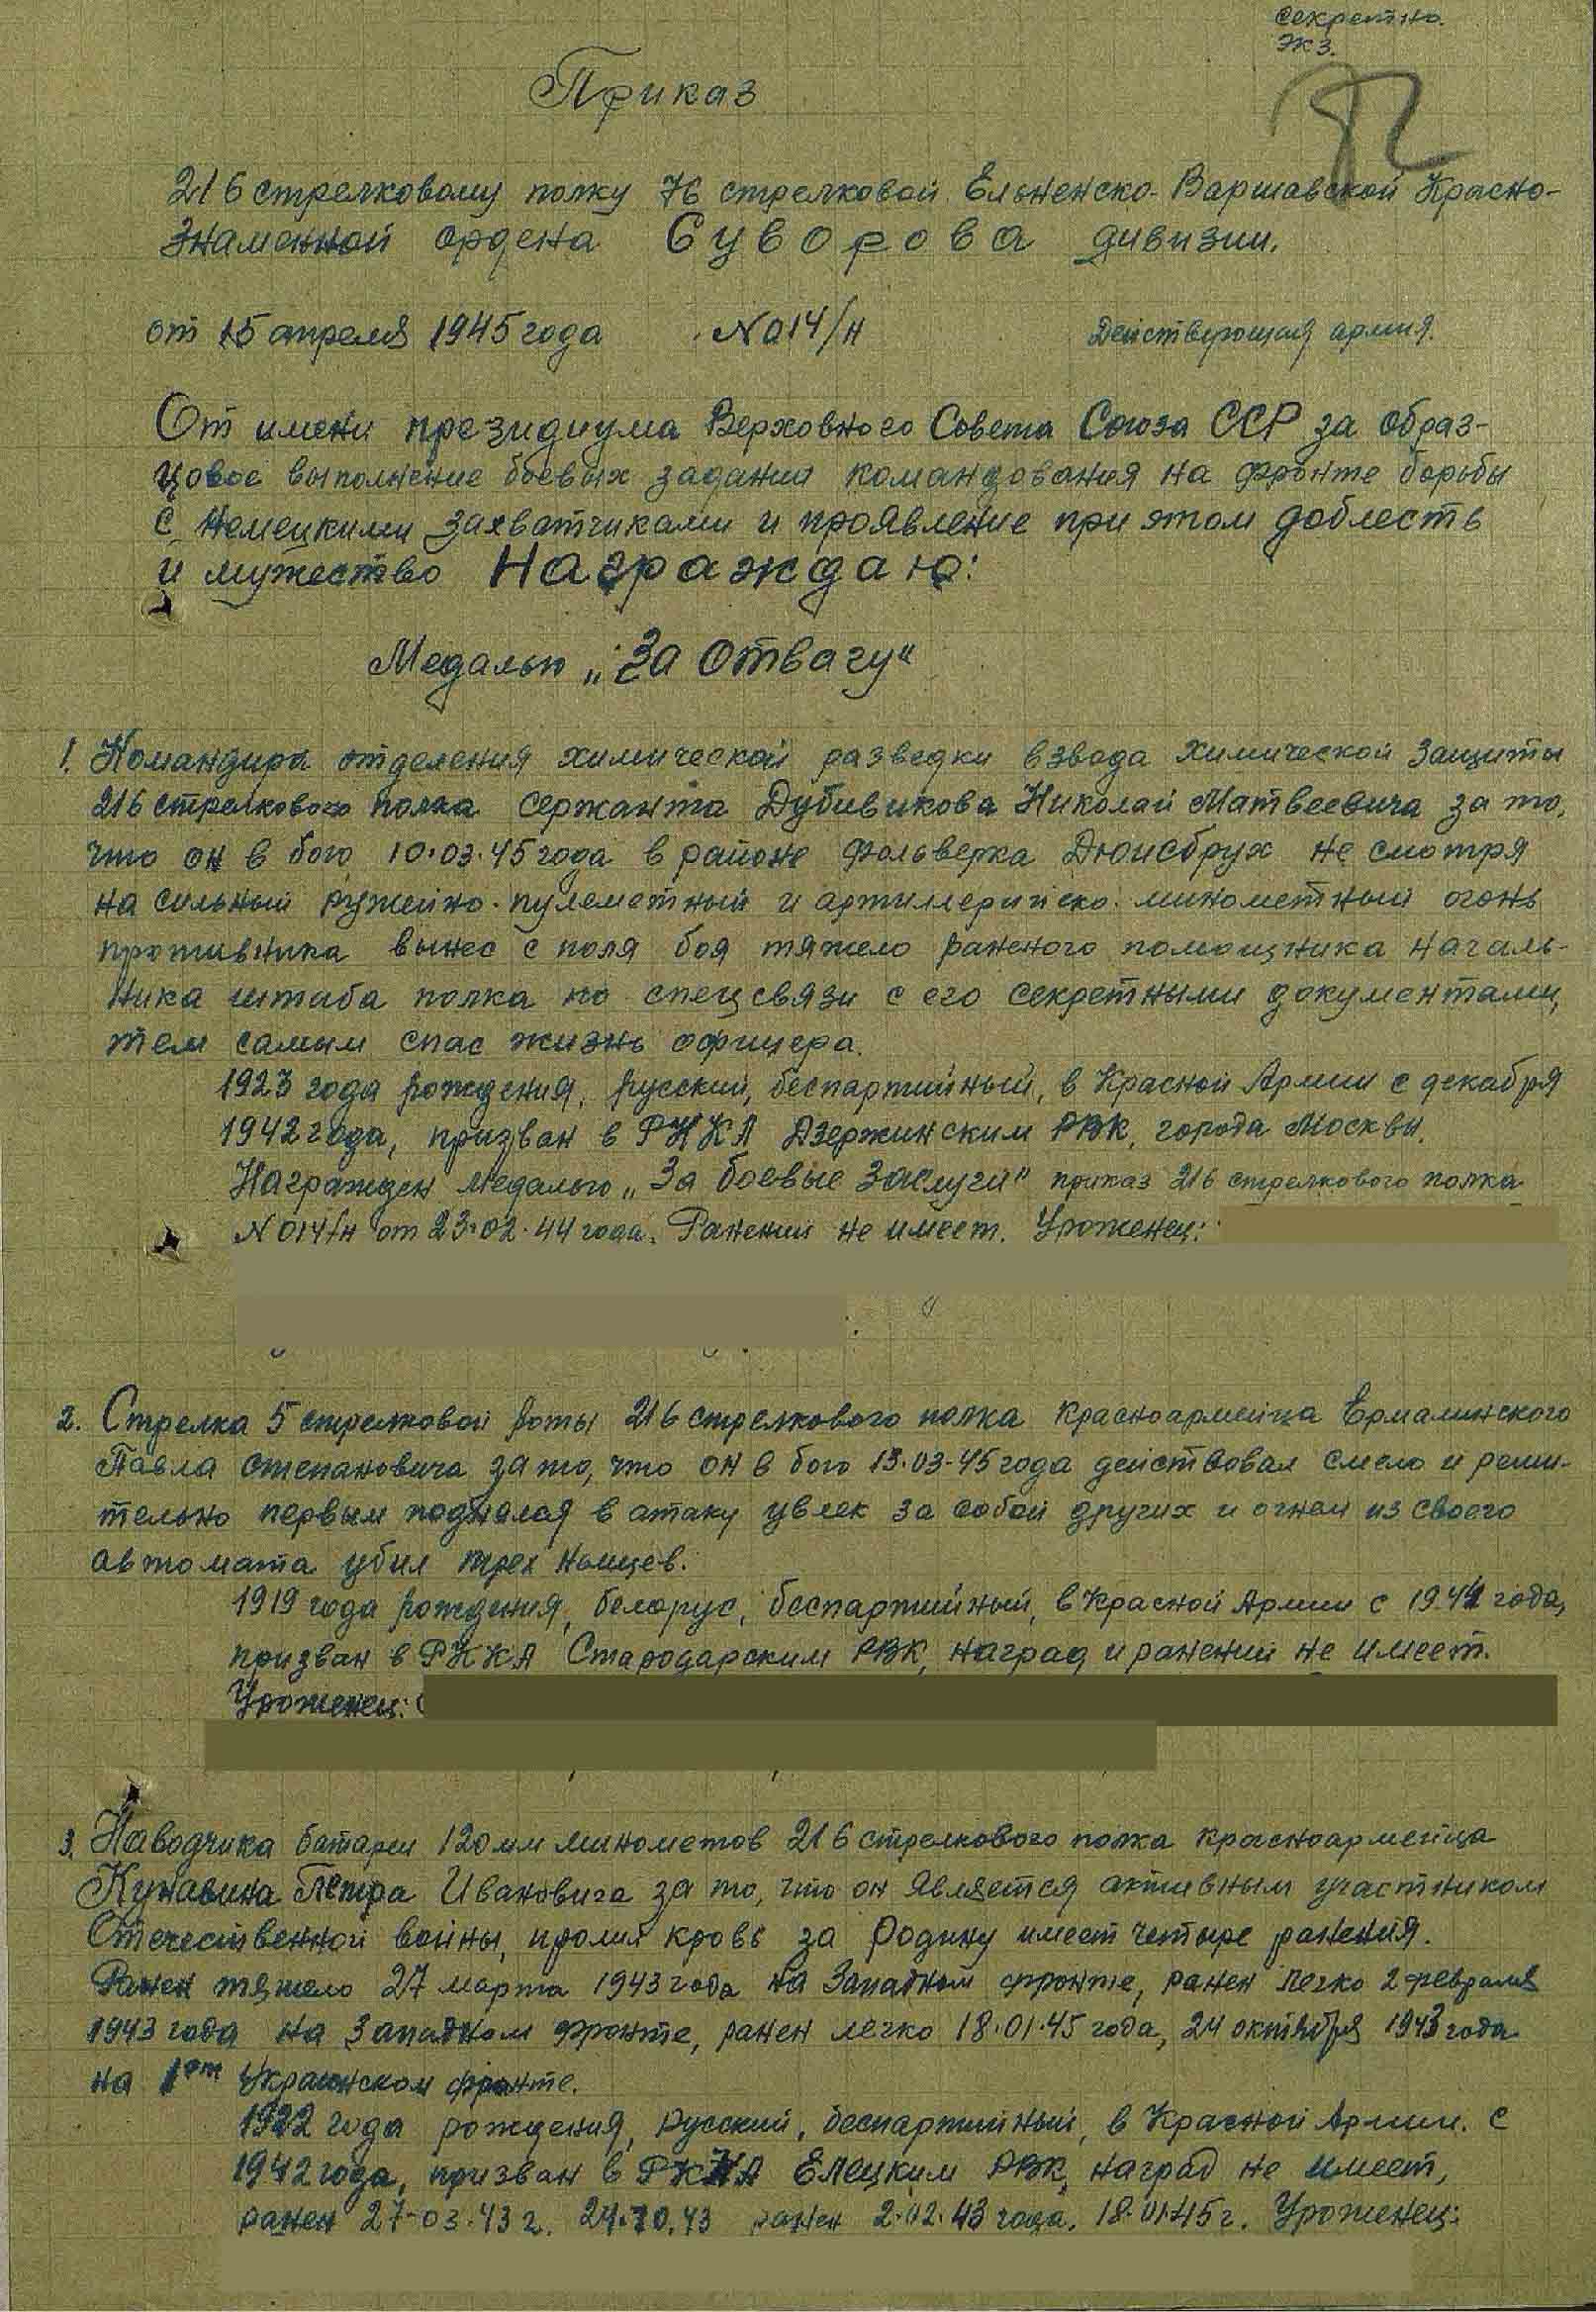 секретно.
экз.
92
Приказ
216 стрелковому полку 76 стрелковой Ельненско-Варшавской Красно-
знаменной ордена Суворова дивизии.
от 15 апреля 1945 года № 014/н Действующая армия.
От имени президиума Верховного Совета Союза ССР за образ-
цовое выполнение боевых заданий командования на фронте борьбы
с немецкими захватчиками и проявление при этом доблесть
и мужество Награждаю:
Медалью „За Отвагу“
1. Командира отделения химической разведки взвода химической защиты
216 стрелкового полка сержанта Дубивикова Николай Матвеевича за то,
что он в бою 10.03.45 года в районе фольверка Дюисбрух не смотря
на сильный ружейно-пулеметный и артиллерийско-минометный огонь
противника вынес с поля боя тяжело раненого помощника началь-
ника штаба полка по спецсвязи с его секретными документами,
тем самым спас жизнь офицера.
1923 года рождения, русский, беспартийный, в Красной Армии с декабря
1942 года, призван в РККА Дзержинским РВК, города Москвы.
Награжден медалью „За боевые заслуги“ приказ 216 стрелкового полка
№ 014/н от 23.02.44 года. Ранений не имеет. Уроженец:
2. Стрелка 5 стрелковой роты 216 стрелкового полка красноармейца Ермалинского
Павла Степановича за то, что он в бою 13.03.45 года действовал смело и реши-
тельно первым поднялся в атаку увлек за собой других и огнем из своего
автомата убил трех немцев.
1919 года рождения, белорус, беспартийный, в Красной Армии с 1944 года,
призван в РККА Стародарским РВК, наград и ранений не имеет.
Уроженец:
3. Наводчика батареи 120 мм минометов 216 стрелкового полка красноармейца
Кунавина Петра Ивановича за то, что он является активным участником
Отечественной войны, пролил кровь за Родину имеет четыре ранения.
Ранен тяжело 27 марта 1943 года на Западном фронте, ранен легко 2 февраля
1943 года на Западном фронте, ранен легко 18.01.45 года, 24 октября 1943 года
на 1ом Украинском фронте.
1922 года рождения, русский, беспартийный, в Красной Армии. с
1942 года, призван в РККА Елецким РВК, наград не имеет,
ранен 27-03.43 г. 24.10.43 ранен 2.02.43 года. 18.01.45 г. Уроженец: